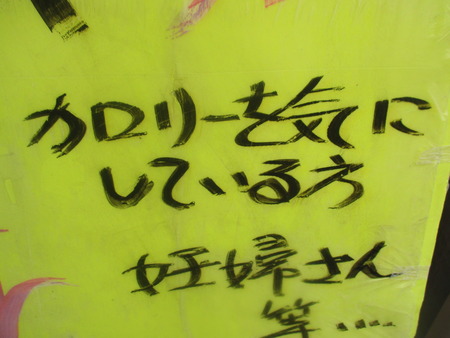 カロリーを気に
している方
妊婦さん
等....